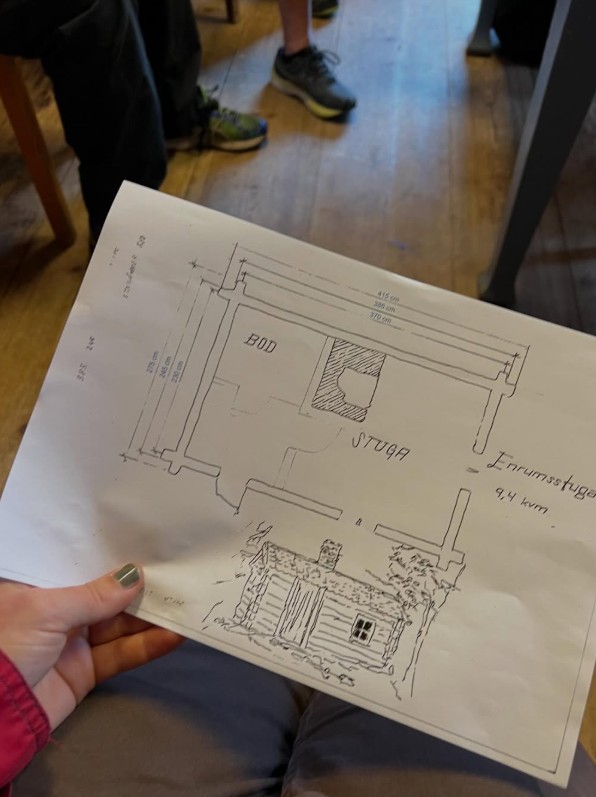 415 cm
385 cm
370 cm
BOD
275 cm
245 cm
230 cm
STUGA
Enrumsstuga
9,4 kvm.